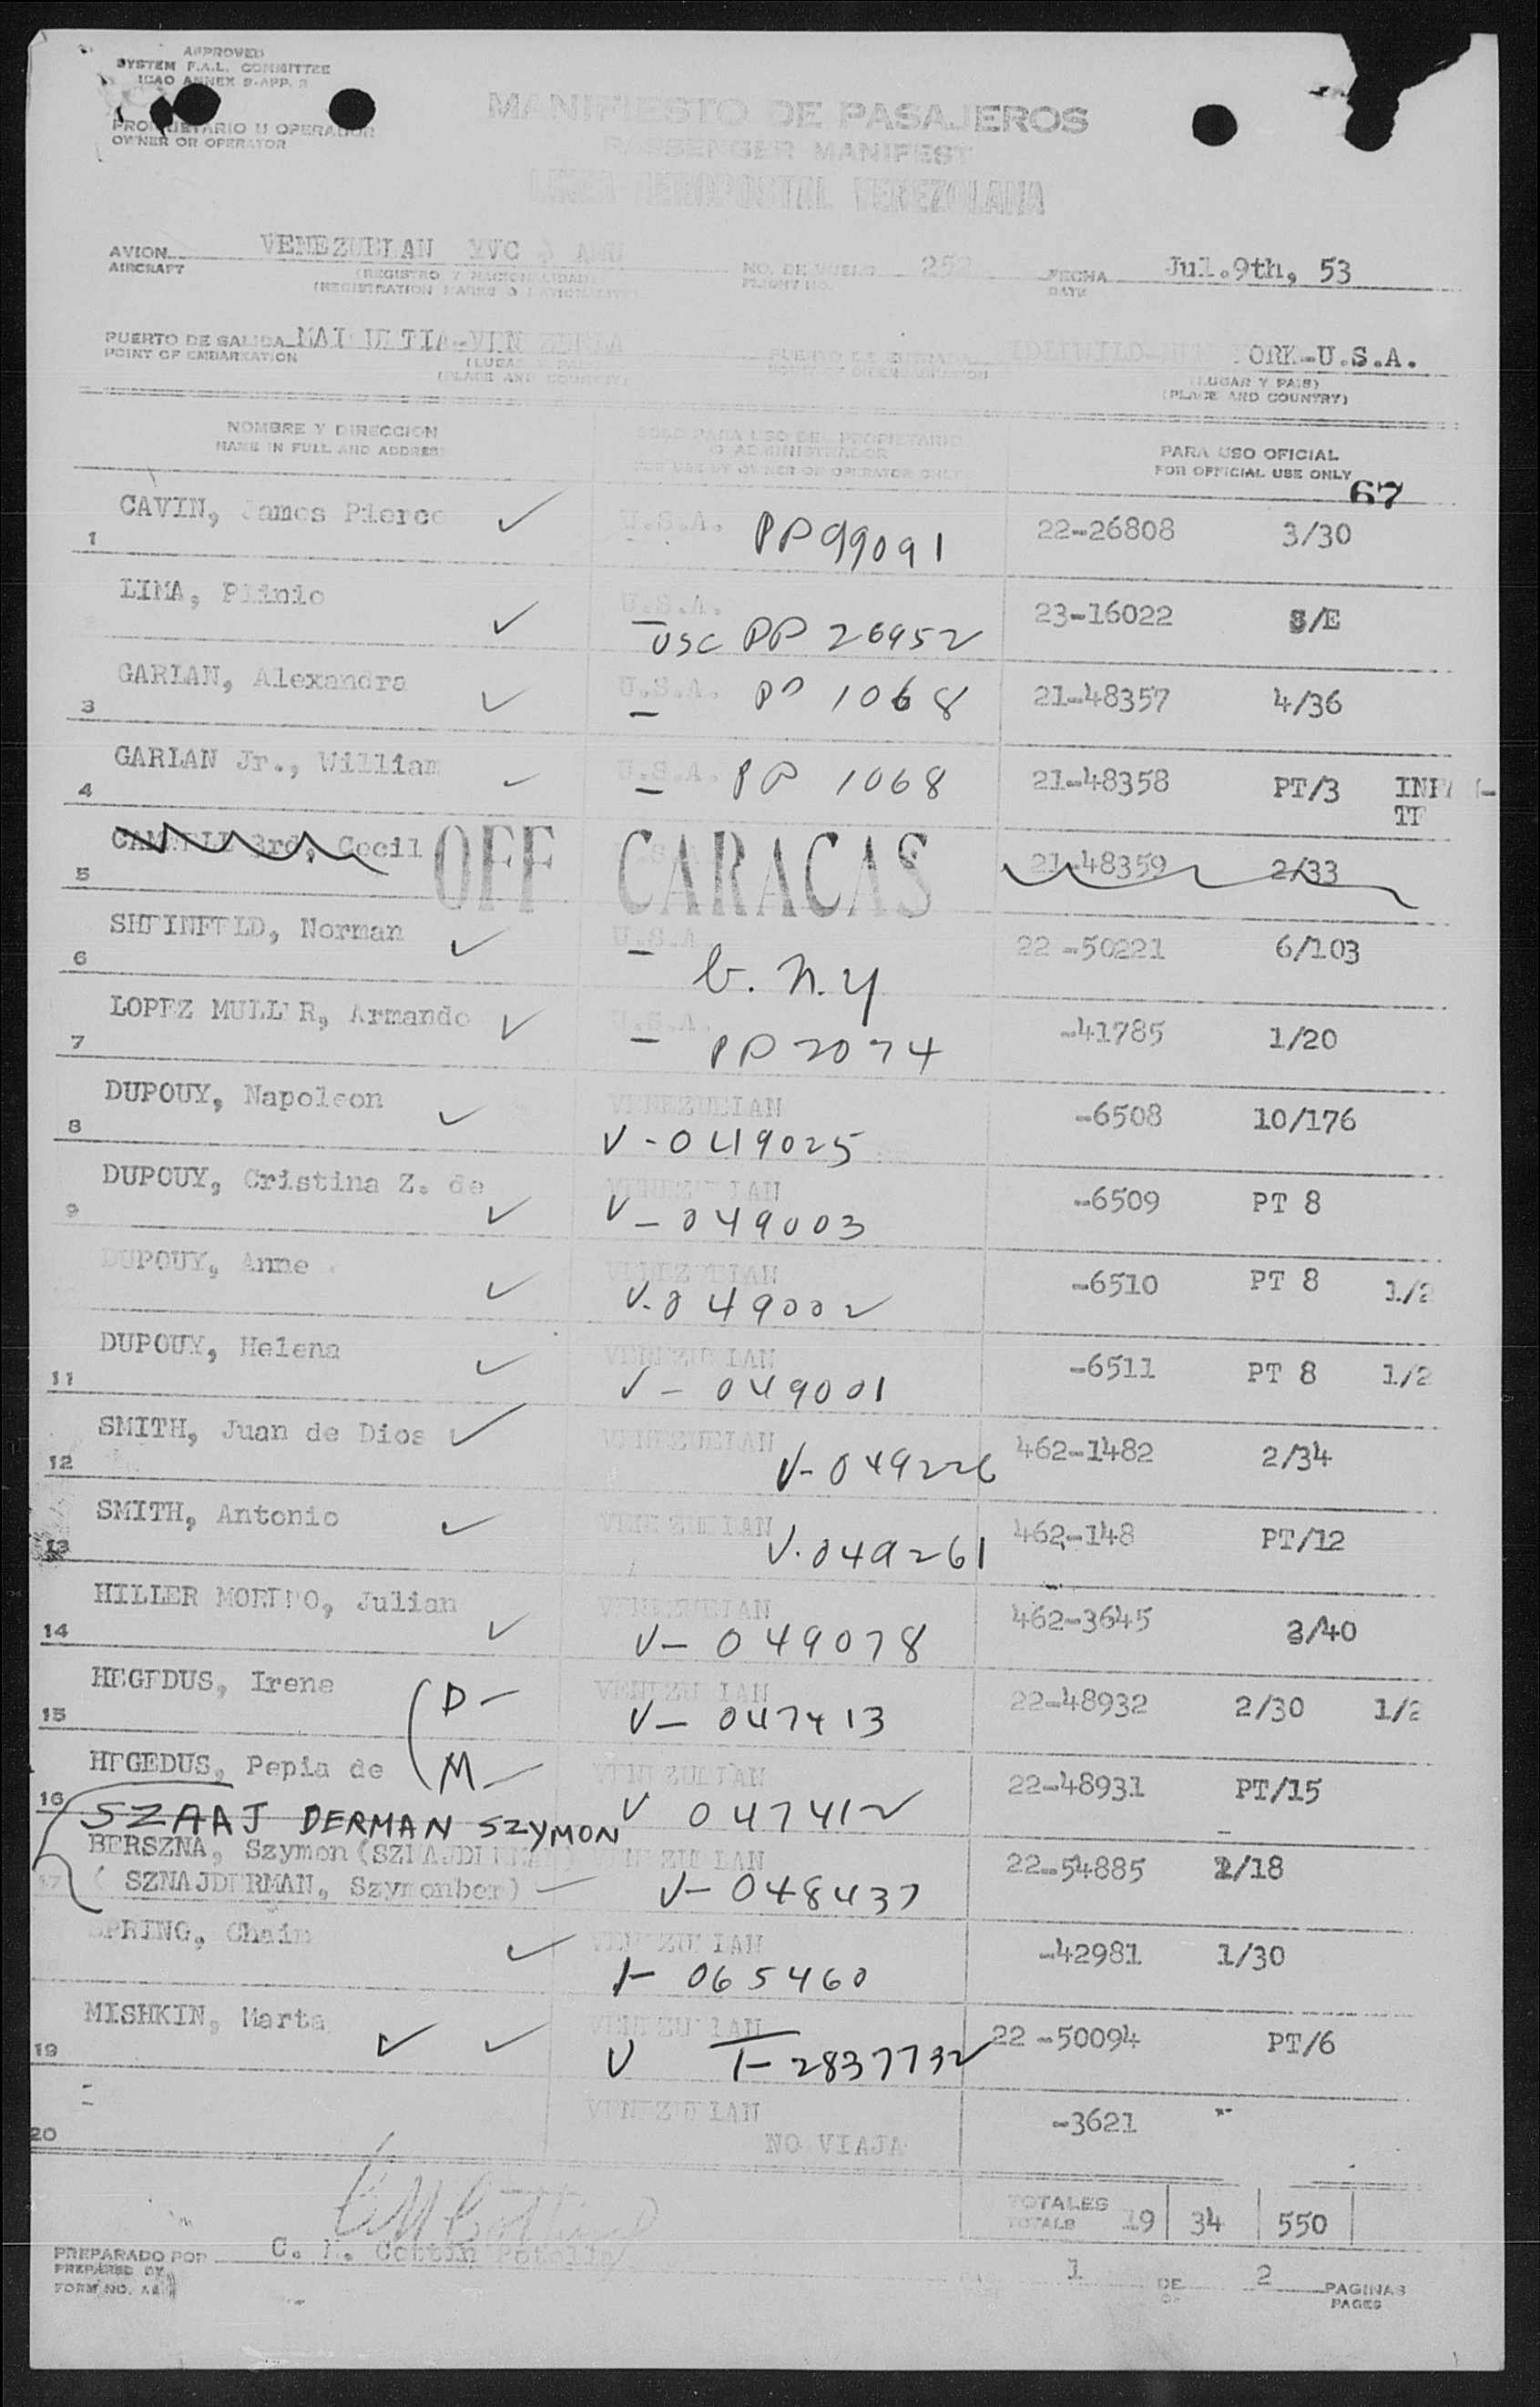 APPROVED
SYSTEM F.A.L. COMMITTEE
ICAO ANNEX 9-APP. 3
PROPIETARIO U OPERADOR
OWNER OR OPERATOR
MANIFIESTO DE PASAJEROS
PASSENGER MANIFEST
LINEA AEROPOSTAL VENEZOLANA
AVION VENEZUELAN YVC NO. DE VUELO 252 FECHA Jul.9th, 53
AIRCRAFT (REGISTRO Y NACIONALIDAD) FLIGHT NO. DATE
(REGISTRATION MARKS & NATIONALITY)
PUERTO DE SALIDA MAIQUETIA-VENEZUELA PUERTO DE ENTRADA YORK-U.S.A.
POINT OF EMBARKATION (LUGAR PAIS) (LUGAR Y PAIS)
(PLACE AND COUNTRY) (PLACE AND COUNTRY)
NOMBRE Y DIRECCION SOLO PARA USO DEL PROPIETARIO PARA USO OFICIAL
NAME IN FULL AND ADDRESS O ADMINISTRADOR FOR OFFICIAL USE ONLY
FOR USE BY OWNER OR OPERATOR ONLY 67
1 CAVIN, James Pierce ✓ U.S.A. PP 99091 22-26808 3/30
LIMA, Plinio ✓ U.S.A. 23-16022 S/E
USC PP 26952
3 GARLAN, Alexandra ✓ U.S.A. PP 1068 21-48357 4/36
4 GARLAN Jr., William ✓ U.S.A. PP 1068 21-48358 PT/3
5 3rd, Cecil OFF CARACAS 21-48359 2/33
6 SHEINFELD, Norman ✓ U.S.A. 22-50221 6/103
b. N.Y
7 LOPEZ MULLER, Armando ✓ U.S.A. -41785 1/20
PP 2074
8 DUPOUY, Napoleon ✓ VENEZUELAN -6508 10/176
V-049025
9 DUPOUY, Cristina Z. de ✓ VENEZUELAN -6509 PT 8
V-049003
DUPOUY, Anne ✓ VENEZUELAN -6510 PT 8 1/2
V-049002
11 DUPOUY, Helena ✓ VENEZUELAN -6511 PT 8 1/2
V-049001
12 SMITH, Juan de Dios ✓ VENEZUELAN 462-1482 2/34
V-049226
13 SMITH, Antonio ✓ VENEZUELAN 462-148 PT/12
V-049261
14 HILLER MORENO, Julian ✓ VENEZUELAN 462-3645 3/40
V-049078
15 HEGEDUS, Irene D- VENEZUELAN 22-48932 2/30 1/2
V-047413
16 HEGEDUS, Pepia de M- VENEZUELAN 22-48931 PT/15
V 047412
SZAAJ DERMAN SZYMON
BERSZNA, Szymon (SZNAJDERMAN) VENEZUELAN 22-54885 2/18
17 (SZNAJDERMAN, Szymonber) V-048437
SPRING, Chaim ✓ VENEZUELAN -42981 1/30
I-065460
19 MISHKIN, Marta ✓ ✓ VENEZUELAN 22-50094 PT/6
V I-2837732
20 VENEZUELAN -3621
NO VIAJA
TOTALES
TOTALS 19 34 550
PREPARADO POR C. M. Cottin
PREPARED BY 1 DE 2 PAGINAS
FORM NO. PAGES